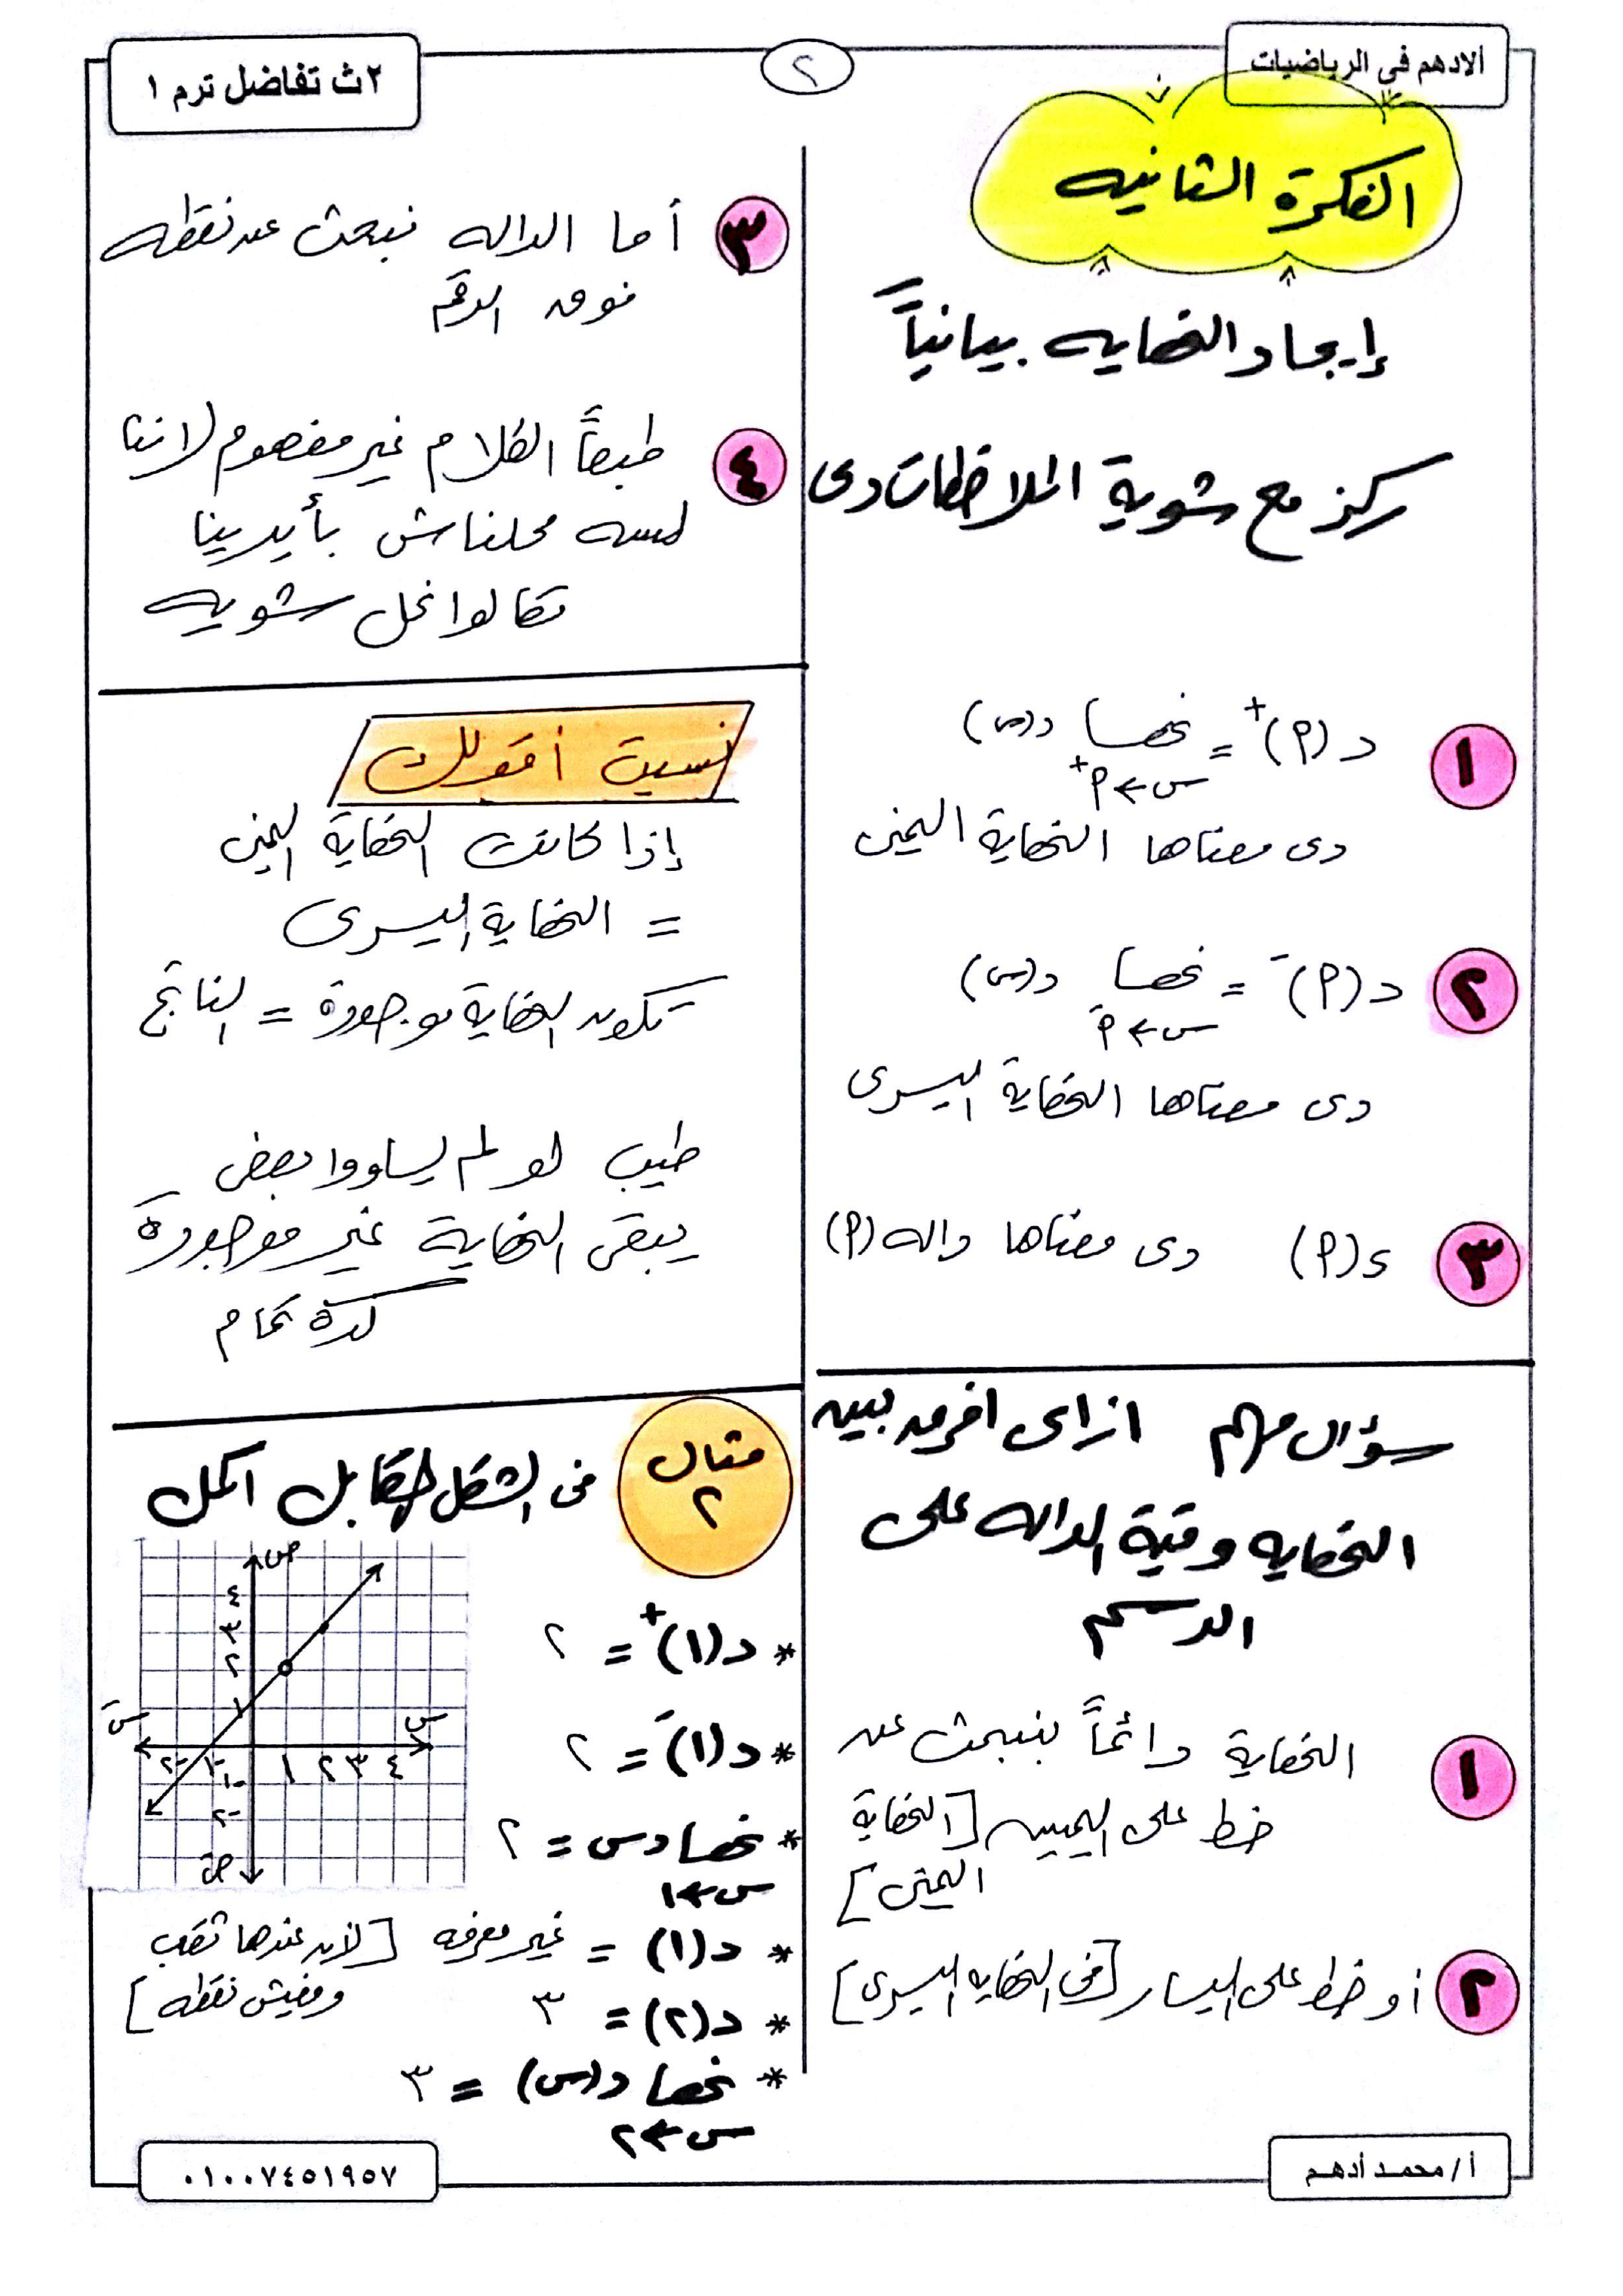 الادهم في الرياضيات
٢
٢ث تفاضل ترم ١
الفكرة الثانيه
إيجاد النهايه بيانياً
ركز مع شوية الملاحظات دى
١ د(٢)⁺ = نهــا د(س)
س←٢⁺
دى معناها النهاية اليمنى
٢ د(٢)⁻ = نهــا د(س)
س←٢⁻
دى معناها النهاية اليسرى
٣ د(٢) دى معناها داله (٢)
سؤال مهم ازاى افرق بين
النهايه وقيمة الداله على
الرسم
١ النهاية دائماً بنبحث عن
خط على اليمين [النهاية
اليمنى]
٢ أو خط على اليسار [فى النهايه اليسرى]
٣ أما الداله نبحث عن نقطه
فوق الرقم
٤ طبعاً الكلام غير مفهوم لاننا
لسه محلناش بأيدينا
تعالوا نحل شويه
نسيت أقولك
إذا كانت النهاية اليمنى
= النهاية اليسرى
تكون النهاية موجودة = الناتج
طيب لو لم يساووا بعض
يبقى النهاية غير موجودة
كدة تمام
مثال ٢
فى الشكل المقابل اكمل
ص
٤
٣
٢
١
سَ
س
٢- ١- ١ ٢ ٣ ٤
١-
٢-
صَ
* د(١)⁺ = ٢
* د(١)⁻ = ٢
* نهــا دس = ٢
س←١
* د(١) = غير معرفه [لان عندها ثقب
ومفيش نقطه]
* د(٢) = ٣
* نهــا د(س) = ٣
س←٢
أ/ محمد أدهم
٠١٠٠٧٤٥١٩٥٧